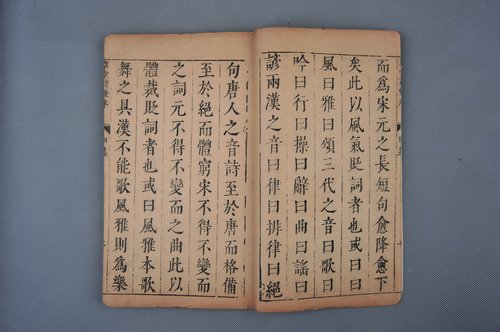 而為宋元之長短句愈降愈下
矣此以風氣貶詞者也或曰曰
風曰雅曰頌三代之音曰歌曰
吟曰行曰操曰辭曰曲曰謠曰
諺兩漢之音曰律曰排律曰絕
句唐人之音詩至於唐而格備
至於絕而體窮宋不得不變而
之詞元不得不變而之曲此以
體裁貶詞者也或曰風雅本歌
舞之具漢不能歌風雅則為樂